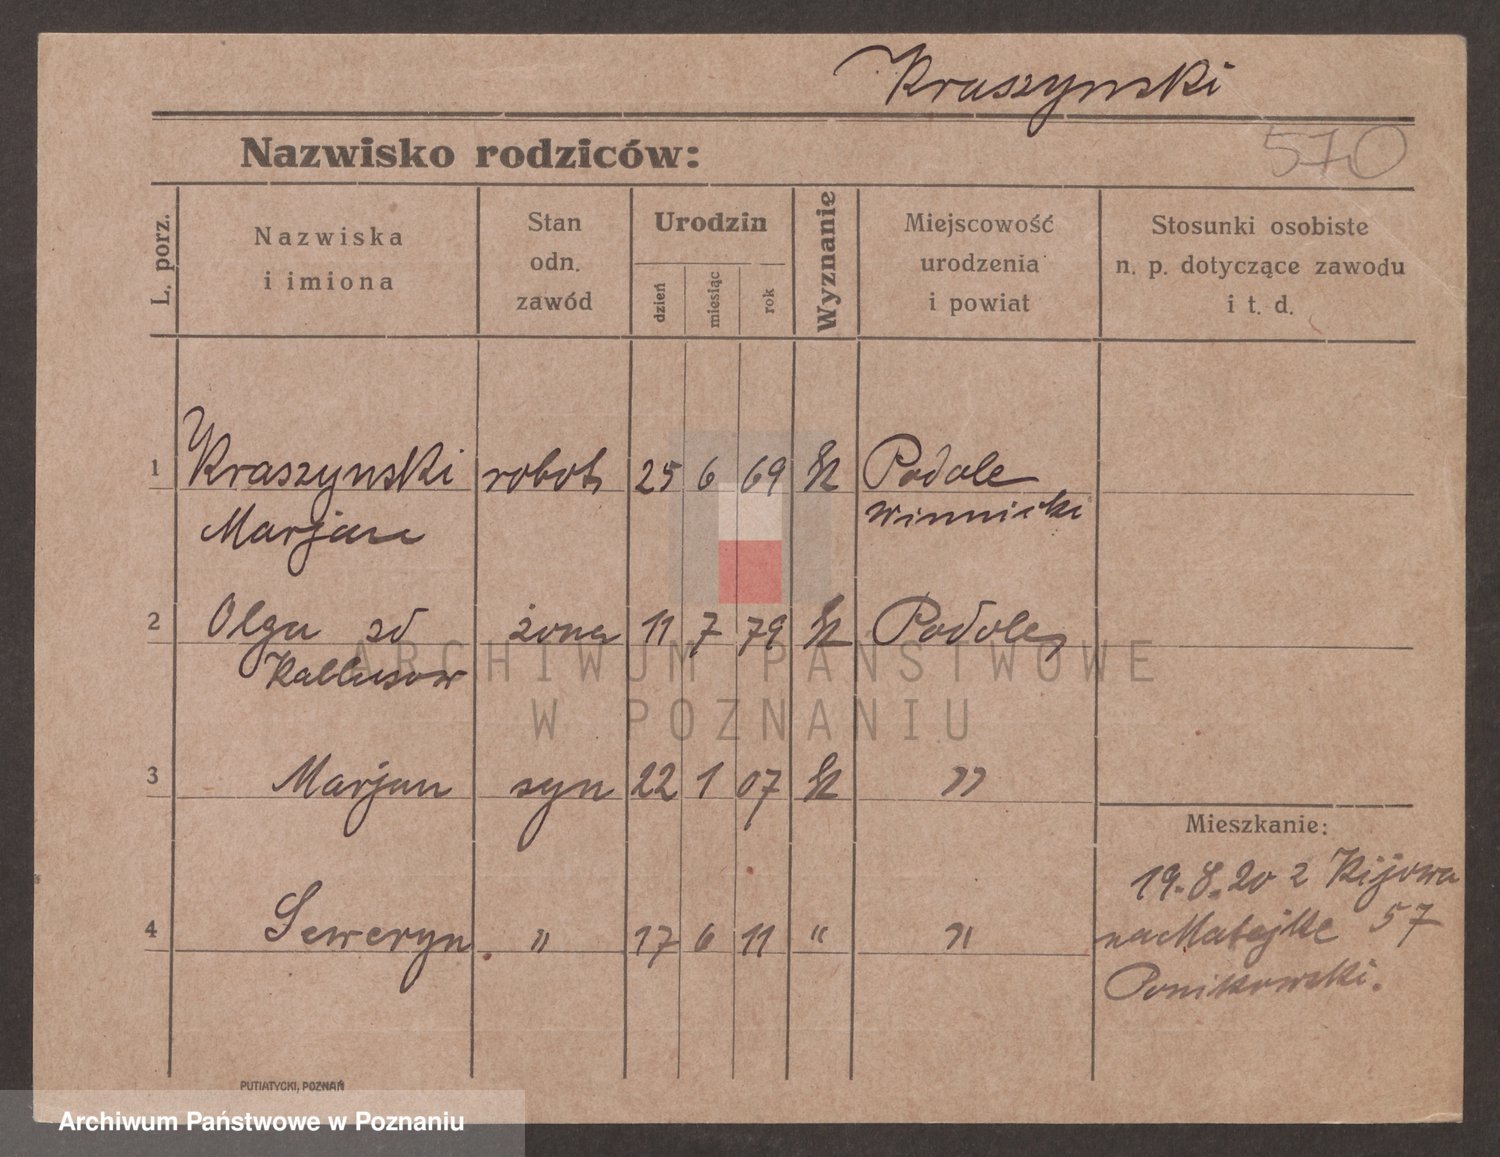 Kraszynski
570
Nazwisko rodziców:
L. porz.
Nazwiska
i imiona
Stan
odn.
zawód
Urodzin
dzień
miesiąc
rok
Wyznanie
Miejscowość
urodzenia
i powiat
Stosunki osobiste
n. p. dotyczące zawodu
i t. d.
1 Kraszynski robot 25 6 69 Podole
Marjan winnicki
2 Olga zd żona 11 7 79 Podole
3 Marjan syn 22 1 07 "
Mieszkanie:
19.8.20 z Kijowa
4 Seweryn " 17 6 11 " "
na Matejki 57
Ponikowski.
PUTIATYCKI, POZNAŃ
ARCHIWUM PAŃSTWOWE
W POZNANIU
Archiwum Państwowe w Poznaniu